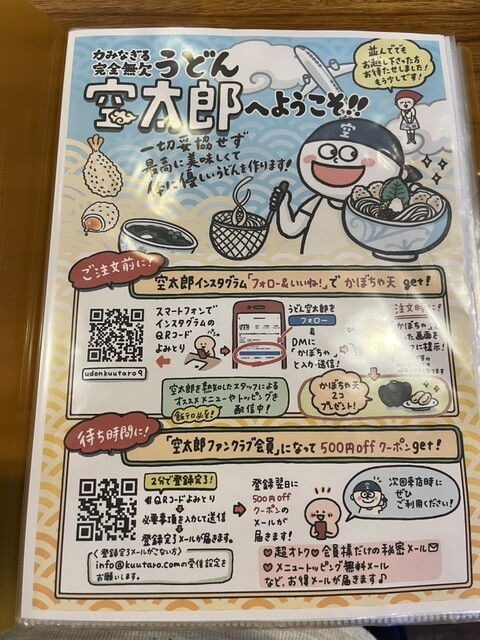 力みなぎる
完全無欠
うどん
空太郎へようこそ!!
並んででも
お越し下さった方
お待たせしました!
もう少しです!
一切妥協せず
最高に美味しくて
体に優しいうどんを作ります!
空
ご注文前に!
空太郎インスタグラム「フォロー&いいね!」でかぼちゃ天get!
スマートフォンで
インスタグラムの
QRコード
よみとり
udonkuutaro9
うどん空太郎を
フォロー
&
DMに
「かぼちゃ」
と入力・送信!
注文時に!
かぼちゃ
画面を
提示!
空太郎を熟知したスタッフによる
オススメメニューやトッピングを
配信中!
飯テロ必至!
かぼちゃ天
2コ
プレゼント!
待ち時間に!
「空太郎ファンクラブ会員」になって500円offクーポンget!
2分で登録完了!
QRコードよみとり
必要事項を入力して送信
登録完了メールが届きます。
〈登録完了メールがこない方〉
info@kuutaro.comの受信設定を
お願いします。
登録翌日に
500円off
クーポンの
メールが
届きます!
次回来店時に
ぜひ
ご利用ください!
♥超オトク♥会員様だけの秘密メール
♥メニュートッピング無料メール
など、お得メールが届きます♪